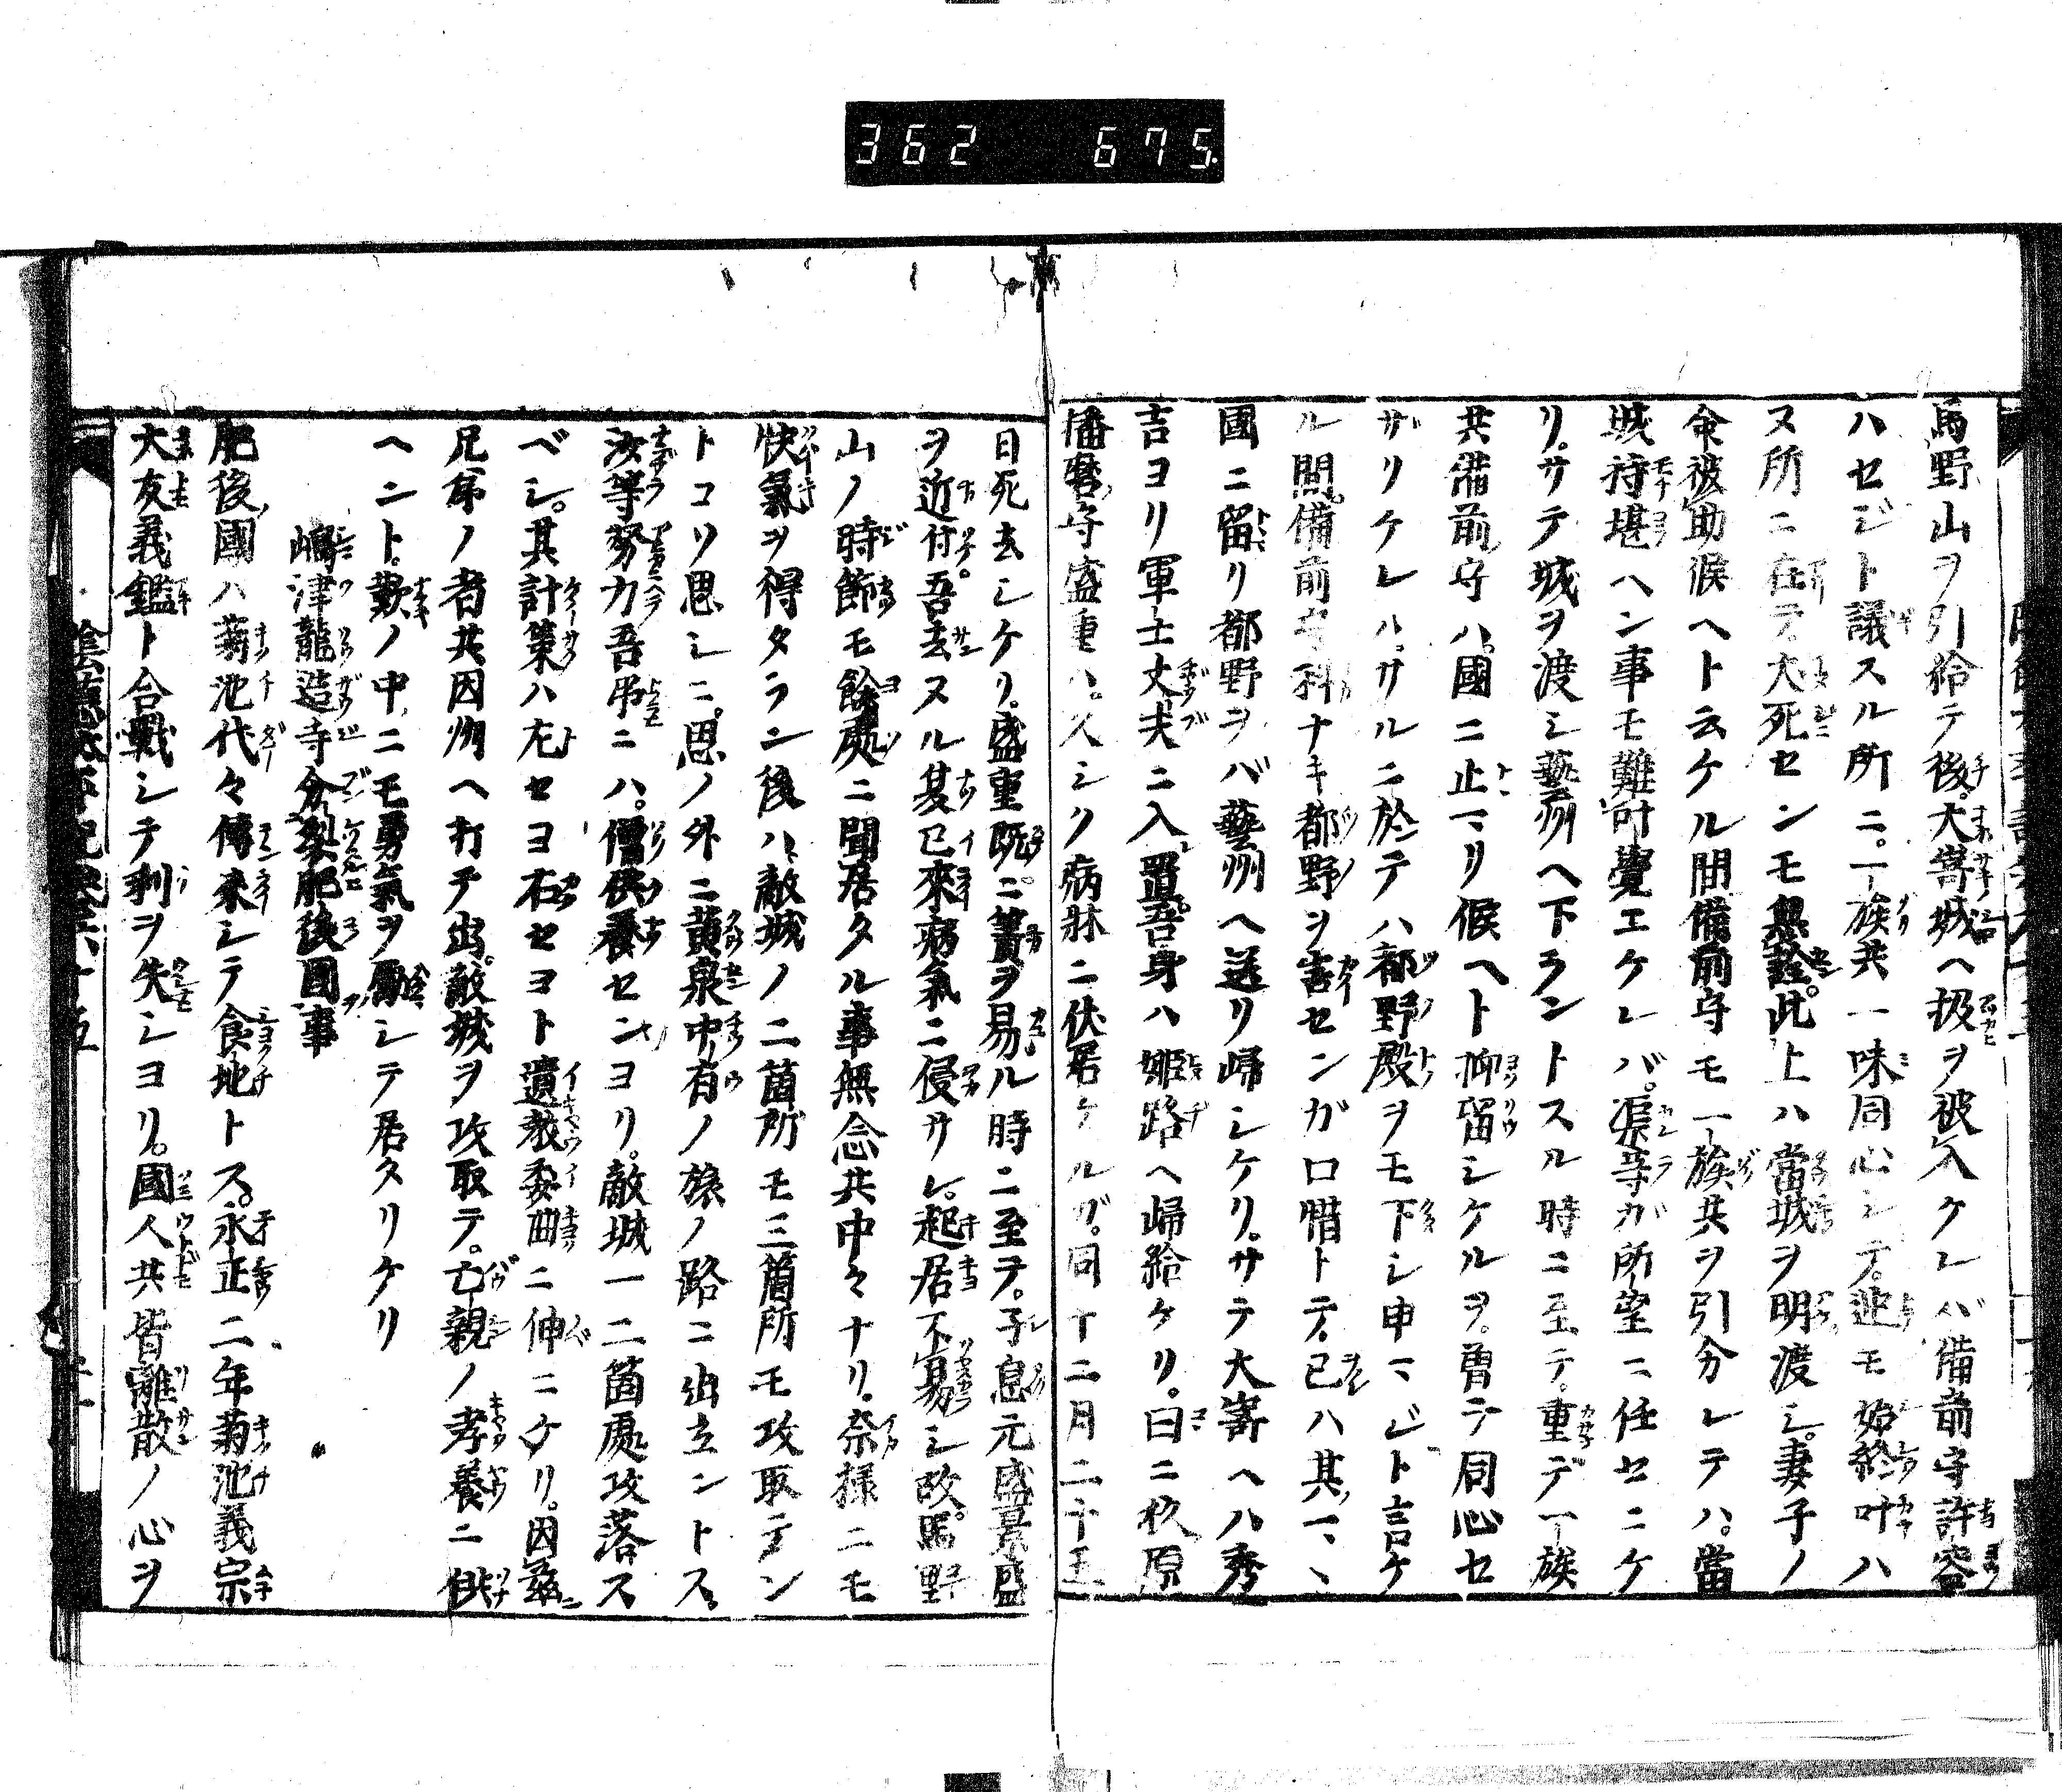 362 675
馬野山ヲ引給テ後。大嵜城ヘ扱ヲ被入ケレバ備前守許容
ハセジト議スル所ニ。一族共一味同心シテ。迚モ始終叶ハ
ヌ所ニ在テ。犬死センモ無詮。此上ハ當城ヲ明渡シ。妻子ノ
命被助候ヘト云ケル間備前守モ一族共ヲ引分レテハ。當
城待堪ヘン事モ難叶覺エケレバ。渠等ガ所望ニ任セニケ
リ。サテ城ヲ渡シ藝州ヘ下ラントスル時ニ至テ。重デ一族
共備前守ハ。國ニ止マリ候ヘト抑留シケルヲ。曾テ同心セ
ザリケレハ。サルニ於テハ都野殿ヲモ下シ申マジト言ケ
ル間。備前守科ナキ都野ヲ害センガ口惜トテ。已ハ其マヽ
國ニ留リ都野ヲバ藝州ヘ送リ歸シケリ。サテ大嵜ヘハ秀
吉ヨリ軍士丈夫ニ入置。吾身ハ姫路ヘ歸給ケリ。曰ニ杦原
播磨守盛重ハ。久シク病牀ニ伏居ケルガ。同十二月二十五
日死去シケリ。盛重既ニ簀ヲ易ル時ニ至テ。子息元盛景盛
ヲ近付。吾去ヌル夏已來病氣ニ侵サレ。起居不易シ故。馬野
山ノ時節モ餘處ニ聞居タル事無念共中々ナリ。奈様ニモ
快氣ヲ得タラン後ハ敵城ノ二箇所モ三箇所モ攻取テン
トコソ思シニ。思ノ外ニ黄泉中有ノ旅ノ路ニ出立ントス。
汝等努力吾弔ニハ。僧供養センヨリ。敵城一二箇處攻落ス
ベシ。其計策ハ左セヨ右セヨト遺教委曲ニ伸ニケリ。因茲
兄弟ノ者共因州ヘ打チ出。敵城ヲ攻取テ。亡親ノ孝養ニ供
ヘント。歎ノ中ニモ勇氣ヲ勵シテ居タリケリ
嶋津龍造寺分契肥後國事
肥後國ハ菊池代々傳來シテ食地トス。永正二年菊池義宗
大友義鑑ト合戰シテ利ヲ失シヨリ。國人共皆離散ノ心ヲ